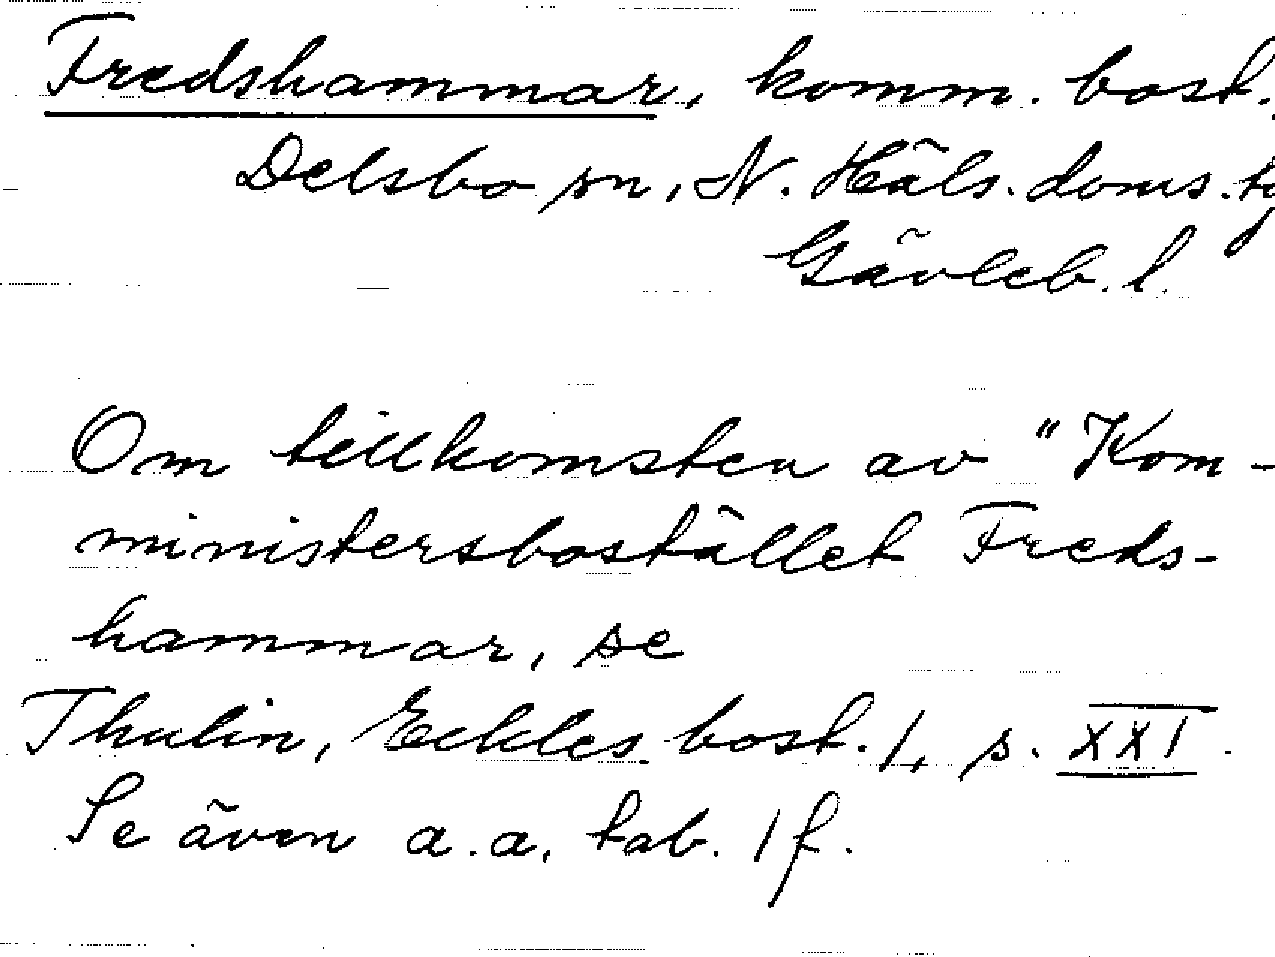 Fredshammar, komm. bost.,
Delsbo sn, N. Häls. doms.
Gävleb. l.
Om tillkomsten av "Kom-
ministersbostället Freds-
hammar, se
Thulin, Eckles. bost. I, s. XXI.
Se även a.a. tab. 1 f.